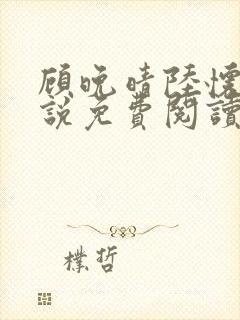 顾晚晴陸懷
說免費閱讀
樸哲